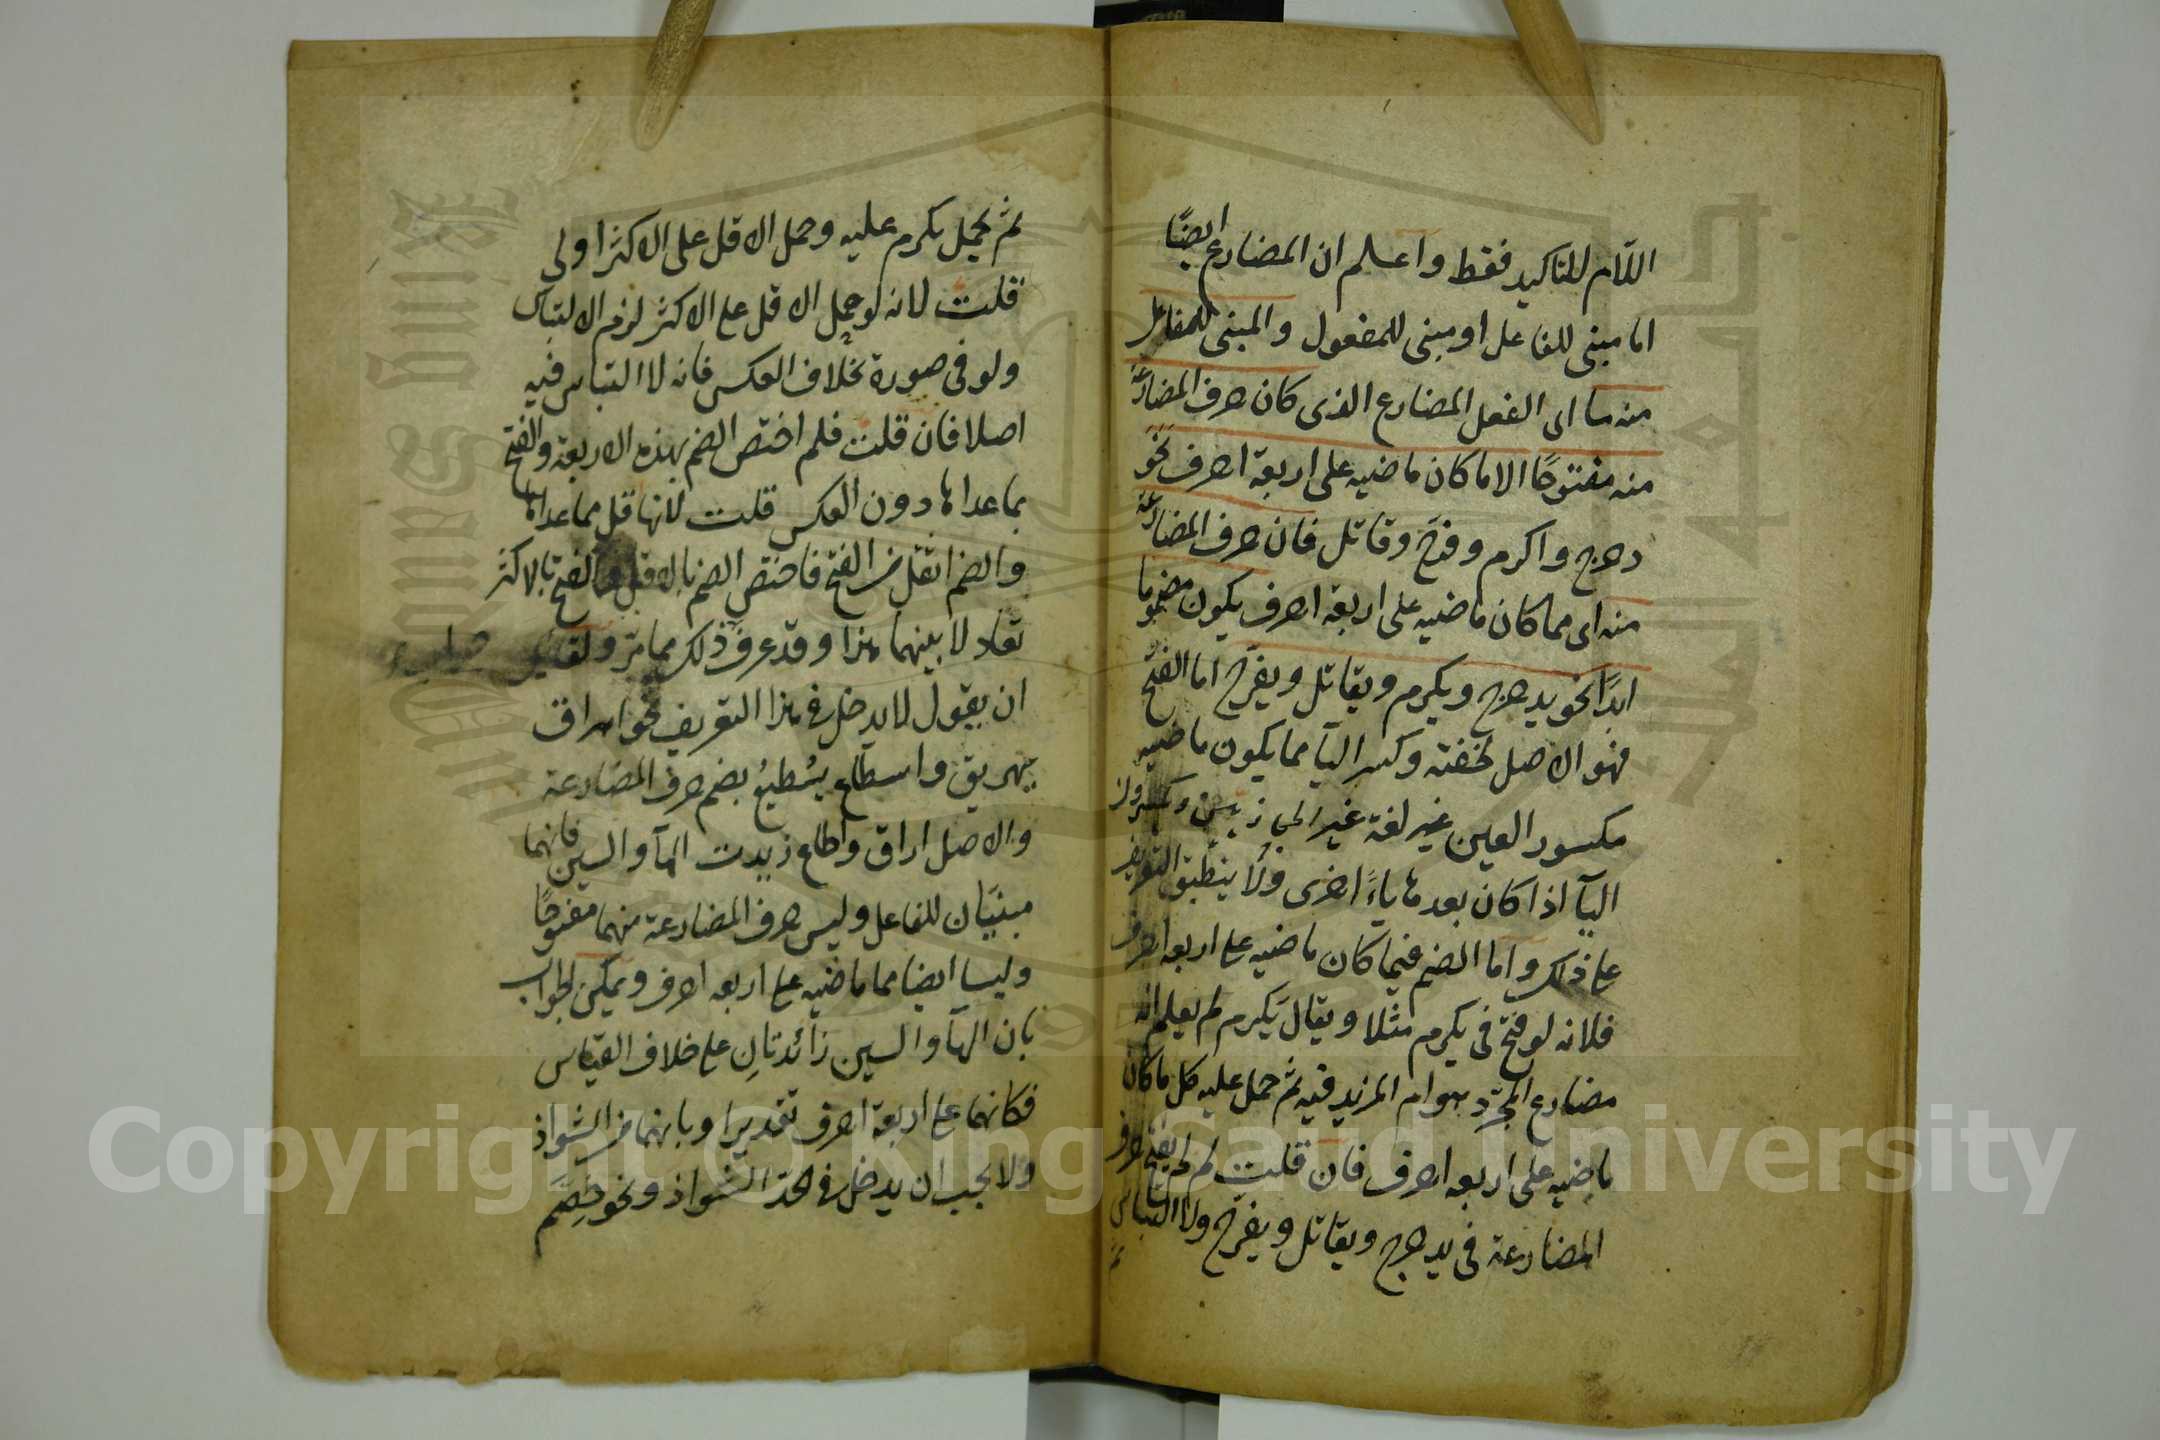 اللّام للتاكيد فقط واعلم ان المضارع ايضًا
اما مبنى للفاعل او مبنى للمفعول والمبنى للفاعل
منه ما اى الفعل المضارع الذى كان حرف المضارعة
منه مفتوحًا الا ما كان ماضيه على اربعة احرف نحو
دحرج واكرم وفرّح وقاتل فان حرف المضارعة
منه اى مما كان ماضيه على اربعة احرف يكون مضموما
ابدًا نحو يدحرج ويكرم ويقاتل ويفرّح اما الفتح
فهو الاصل لخفته وكسر اليآ مما يكون ماضيه
مكسور العين غير لغة غير الحجازيين ويكسرون
اليآ اذا كان بعدها ياءً اخرى ولا ينطبق التعريف
على ذلك واما الضم فيما كان ماضيه على اربعه احرف
فلانه لو فتح فى يكرم مثلا ويقال يَكرم لم يعلم انه
مضارع المجرّد هو ام المزيد فيه ثم حمل عليه كل ما كان
ماضيه على اربعه احرف فان قلت لم لم يفتح حرف
المضارعة فى يدحرج ويقاتل ويفرّح ولا التباس
ثم
ثم يحمل يكرم عليه وحمل الاقل على الاكثر اولى
قلت لانه لو حمل الاقل على الاكثر لزم الالتباس
ولو فى صورة بخلاف العكس فانه لا التباس فيه
اصلا فان قلت فلم اختص الضم بهذه الاربعة والفتح
بما عداها دون العكس قلت لانها اقل مما عداها
والضم اثقل من الفتح فاختص الضم بالاقل والفتح بالاكثر
تعادلا بينهما هذا وقد عرف ذلك مما مرّ ولقائل
ان يقول لا يدخل فى هذا التعريف نحو اهراق
يهريق واسطاع يُسْطيعُ بضم حرف المضارعة
والاصل اراق واطاع زيدت الهآ والسين فانهما
مبنيّان للفاعل وليس حرف المضارعة منهما مفتوحًا
وليسا ايضا مما ماضيه على اربعه احرف ويمكن الجواب
بان الهآ والسين زائدتانِ على خلاف القياس
فكانهما على اربعة احرف تقديرا وبانهما من الشواذ
ولا يجب ان يدخل فى الحدّ الشواذ ونحو خِصَّم
Copyright © King Saud University